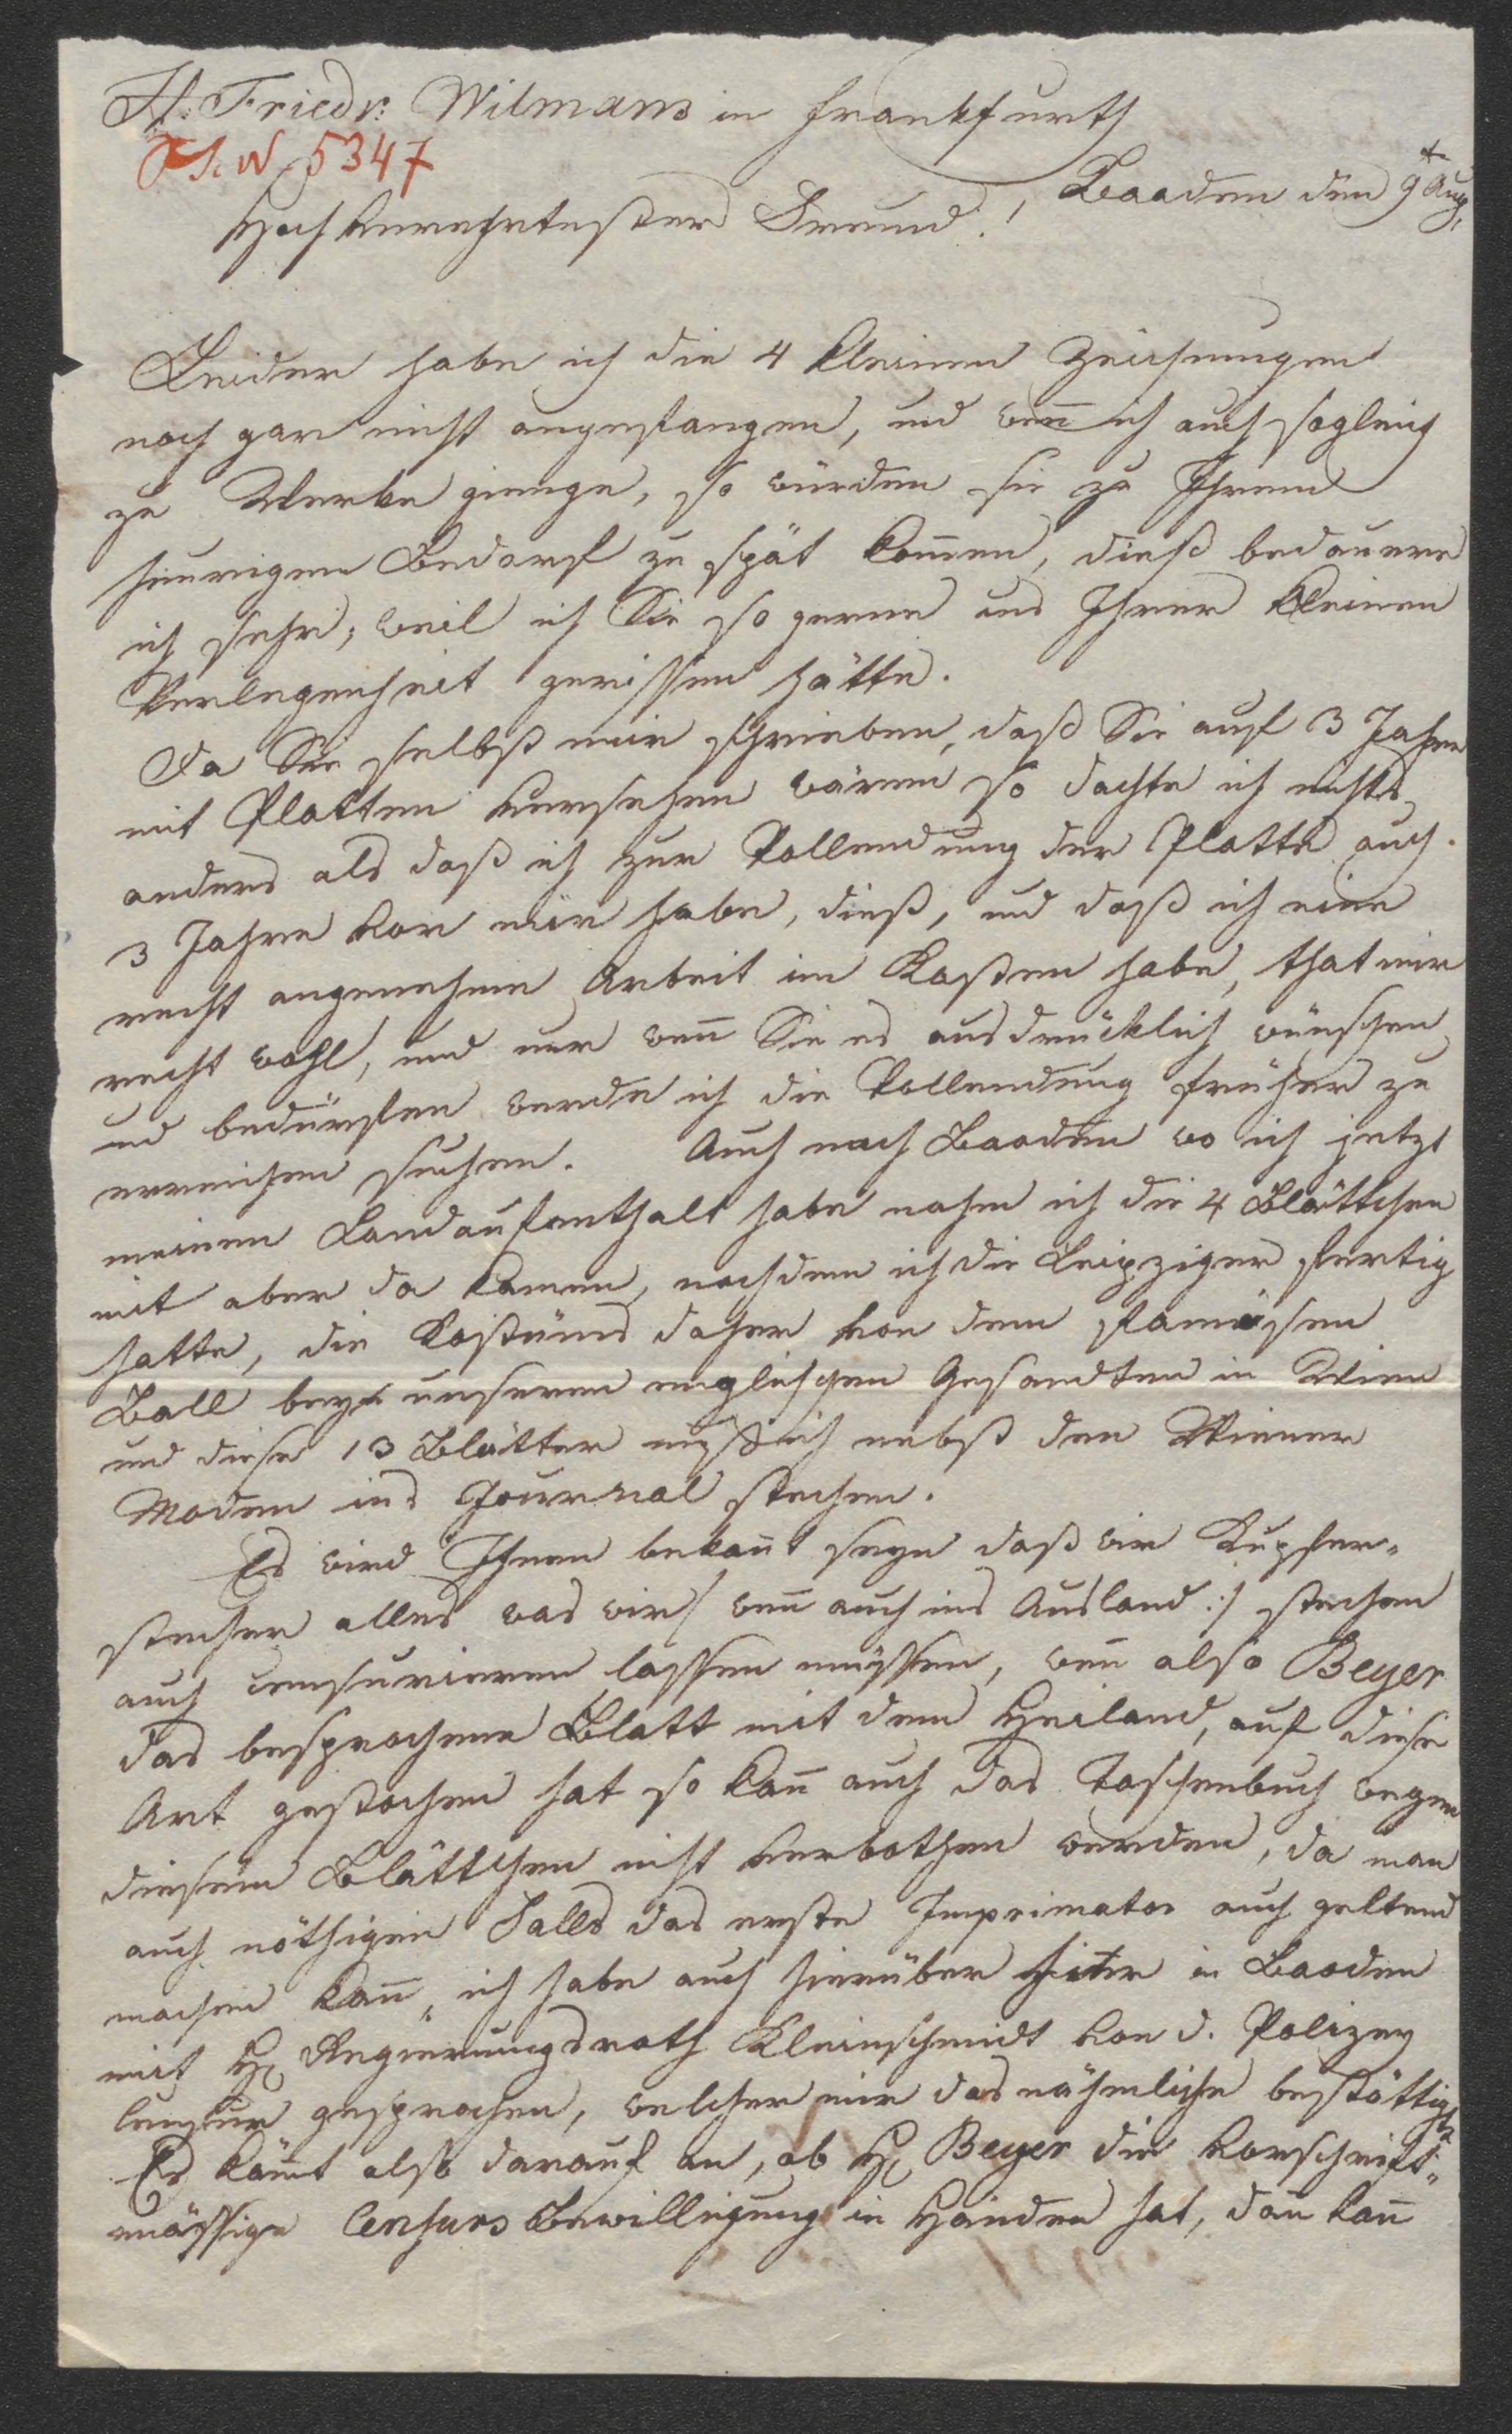 H: Friedr: Wilmans in Frankfurth
N 5347
Baaden den 9t Aug.
Hochverehrtester Freund!
Leider habe ich die 4 kleinen Zeichnungen
noch gar nicht angefangen, und wen̄ ich auch sogleich
zu Werke gienge, so würden sie zu Ihrem
heurigen Bedarf zu spät kom̄en, dieß bedauere
ich sehr, weil ich Sie so gerne aus Ihrer kleinen
Verlegenheit gerissen hätte.
Da Sie selbst mir schrieben, daß Sie auf 3 Jahre
mit Platten versehen wären so dachte ich nichts
anders als daß ich zur Vollendung der Platte auch
3 Jahre vor mir habe, dieß, und daß ich eine
recht angenehme Arbeit im Kasten habe, that mir
recht wohl, und nur wen̄ Sie es ausdrücklich wünschen
und bedürfen werde ich die Vollendung früher zu
erreichen suchen. Auch nach Baaden wo ich jetzt
meinen Landaufenthalt habe nahm ich die 4 Blättchen
mit aber da kamen, nachdem ich die Leipziger fertig
hatte, die Kostüms daher von dem famösen
Ball bey unserem englischen Gesandten in Wien
und diese 13 Blätter muß ich nebst den Wiener
Moden ins Journal stechen.
Es wird Ihnen bekan̄t seyn daß wir Kupfer-
stecher alles was wir /: wen̄ auch ins Ausland :/ stechen
auch censurieren lassen müssen, wen̄ also Beyer
das besprochene Blatt mit dem Heiland, auf diese
Art gestochen hat so kan̄ auch das Taschenbuch wegen
diesem Blättchen nicht verbothen werden, da man
auch nöthigen Falls das erste Imprimatur auch geltend
machen kan̄, ich habe auch hierüber hier in Baaden
mit H. Regierungsrath Kleinschmidt von d. Polizey
Censur gesprochen, welcher mir das nähmliche bestättigte
Es kom̄t also darauf an, ob H. Beyer die vorschrift-
mässige Censurs Bewilligung in Händen hat, dan̄ kan̄